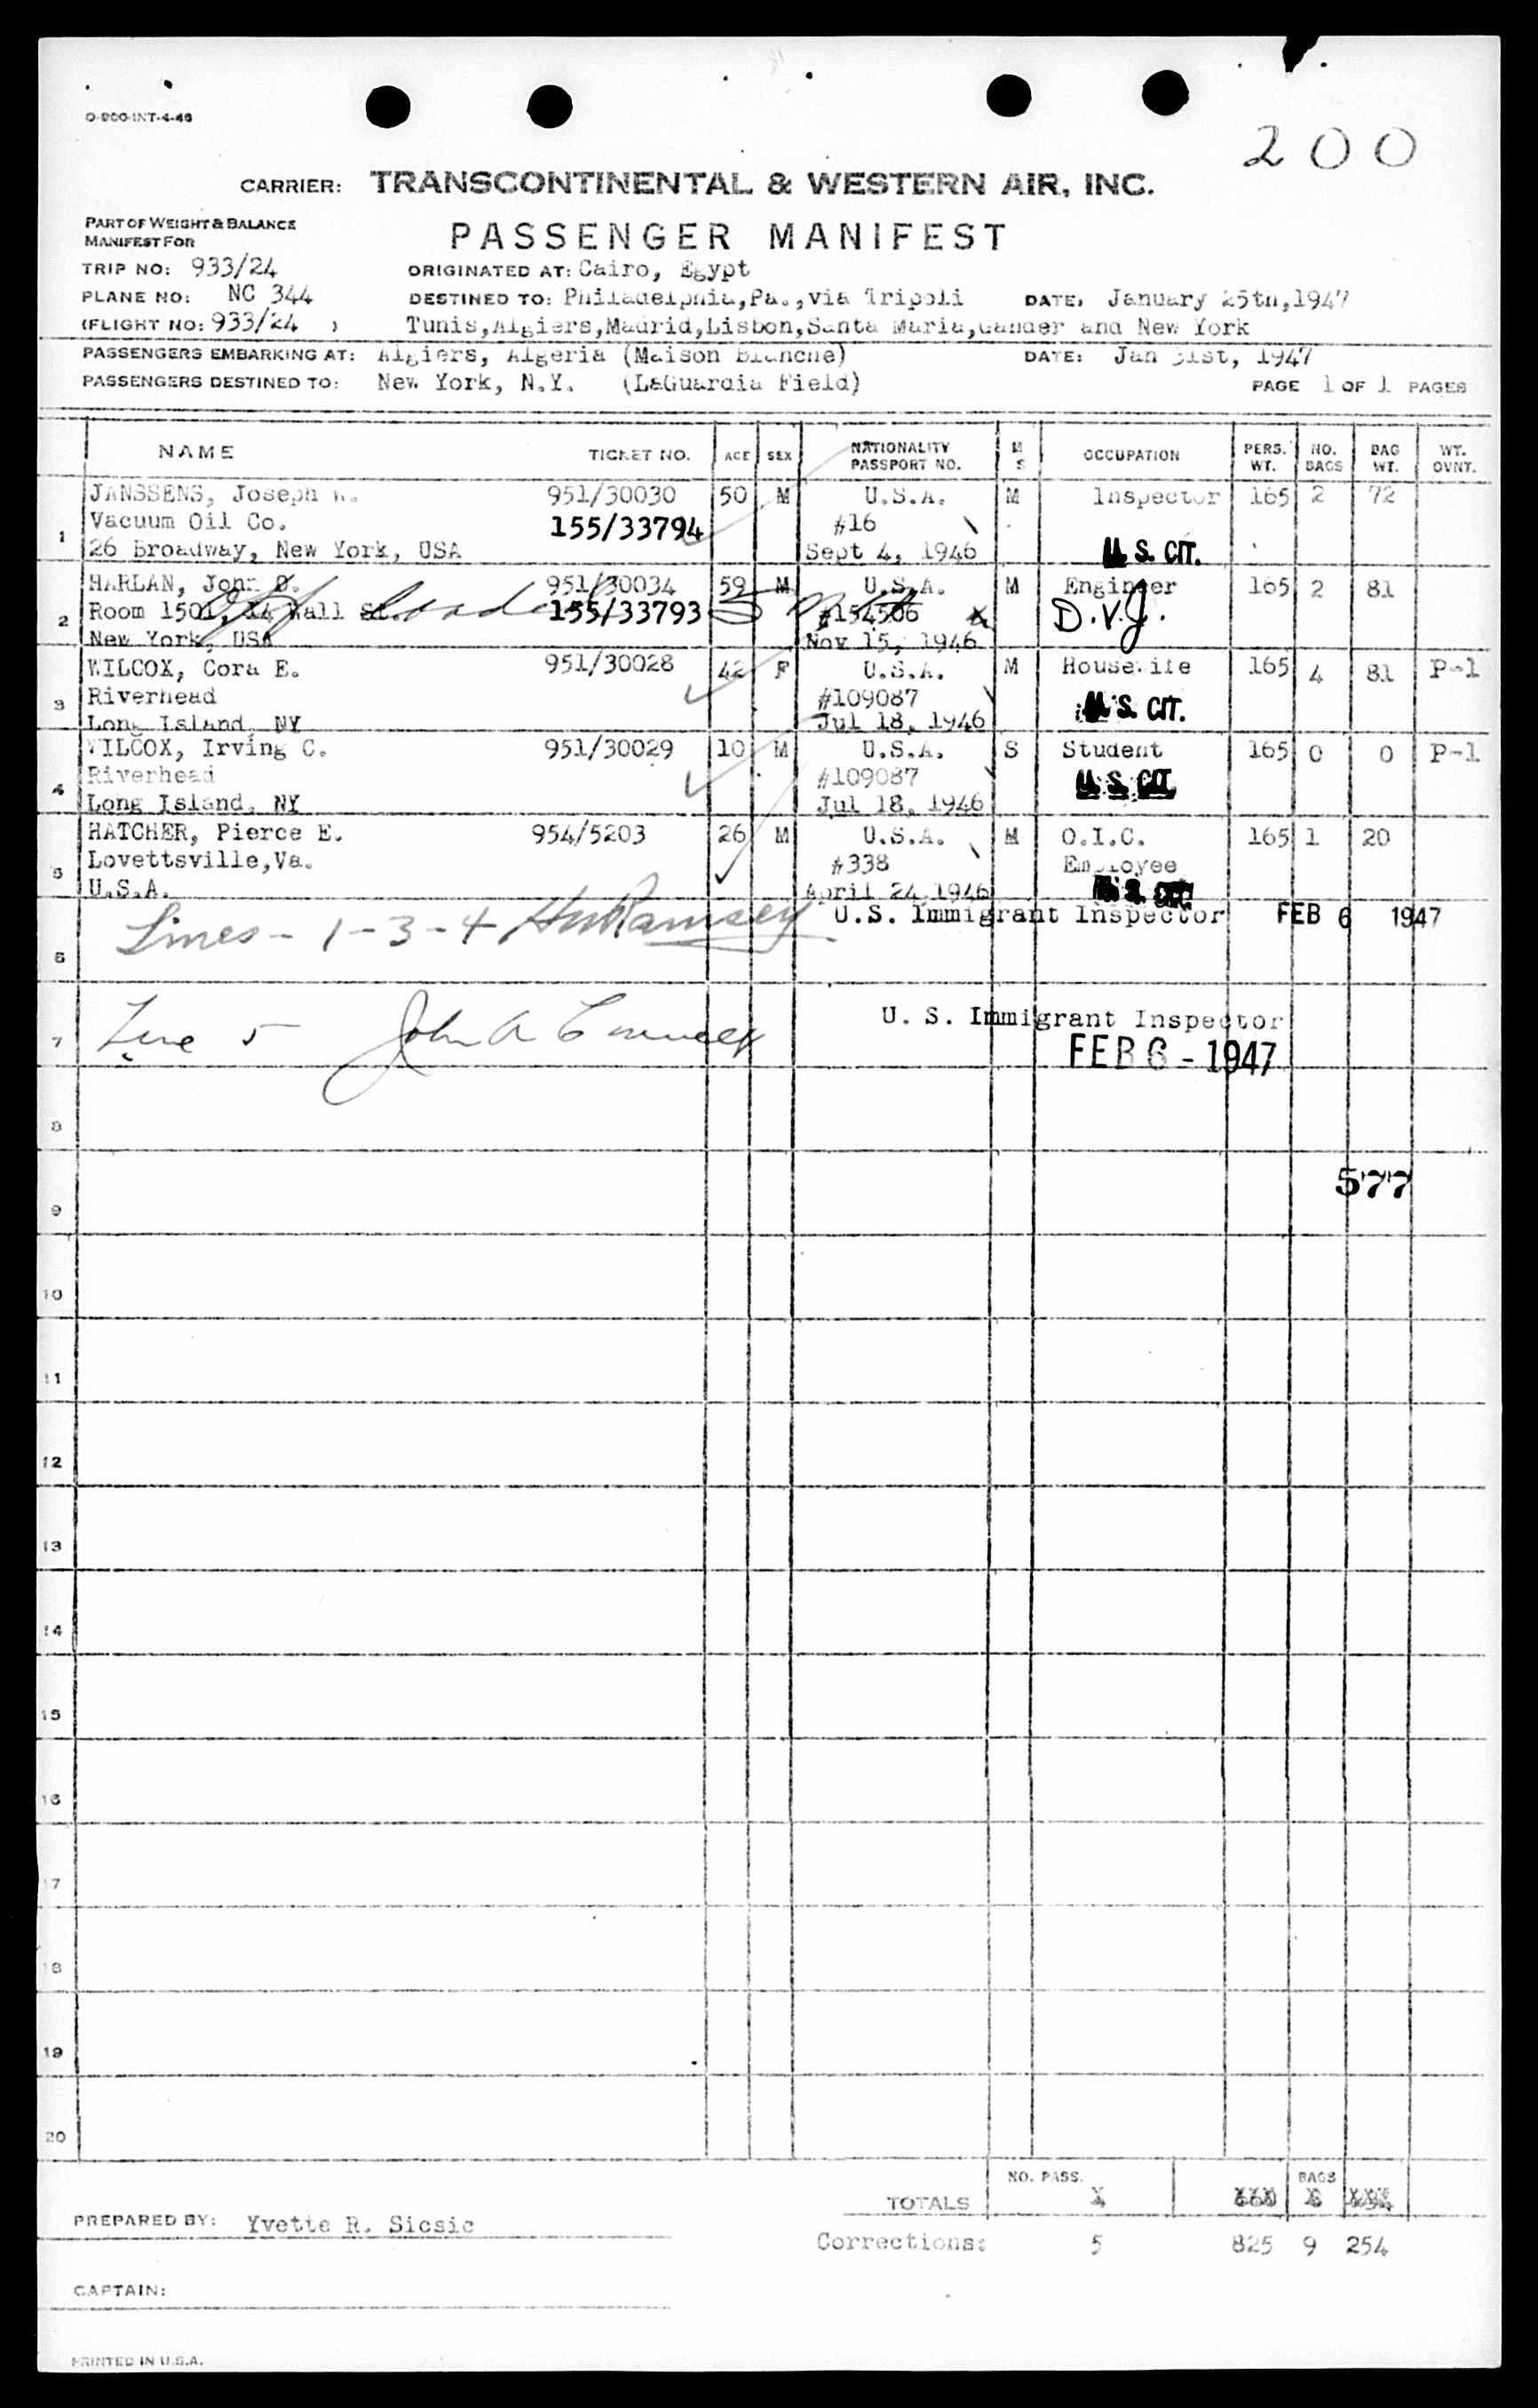 O-900-INT-4-46
200
CARRIER: TRANSCONTINENTAL & WESTERN AIR, INC.
PART OF WEIGHT & BALANCE
MANIFEST FOR
PASSENGER MANIFEST
TRIP NO: 933/24 ORIGINATED AT: Cairo, Egypt
PLANE NO: NC 344 DESTINED TO: Philadelphia,Pa.,via Tripoli DATE, January 25th,1947
(FLIGHT NO: 933/24 ) Tunis,Algiers,Madrid,Lisbon,Santa Maria,Gander and New York
PASSENGERS EMBARKING AT: Algiers, Algeria (Maison Blanche) DATE: Jan 31st, 1947
PASSENGERS DESTINED TO: New York, N.Y. (LaGuardia Field) PAGE 1 OF 1 PAGES
NAME TICKET NO. AGE SEX NATIONALITY PASSPORT NO. M S OCCUPATION PERS. WT. NO. BAGS BAG WT. WT. OVNT.
JANSSENS, Joseph W. 951/30030 50 M U.S.A. M Inspector 165 2 72
Vacuum Oil Co. 155/33794 #16
1 26 Broadway, New York, USA Sept 4, 1946 U.S. CIT.
HARLAN, John O. 951/30034 59 M U.S.A. M Engineer 165 2 81
2 Room 1501, 14 Wall St. 155/33793 #154506 D.V.J.
New York, USA Nov 15, 1946
WILCOX, Cora E. 951/30028 42 F U.S.A. M Housewife 165 4 81 P-1
3 Riverhead #109087 U.S. CIT.
Long Island, NY Jul 18, 1946
WILCOX, Irving C. 951/30029 10 M U.S.A. S Student 165 0 0 P-1
Riverhead #109087 U.S. CIT.
4 Long Island, NY Jul 18, 1946
HATCHER, Pierce E. 954/5203 26 M U.S.A. M O.I.C. 165 1 20
5 Lovettsville,Va. #338 Employee
U.S.A. April 24,1946 U.S. CIT.
Lines - 1-3-4 Ramsey U.S. Immigrant Inspector FEB 6 1947
6
7 Line 5 John A U. S. Immigrant Inspector
FEB 6 - 1947
8
577
9
10
11
12
13
14
15
16
17
18
19
20
NO. PASS. BAGS
TOTALS
PREPARED BY: Yvette R. Sicsic
Corrections: 5 825 9 254
CAPTAIN:
PRINTED IN U.S.A.